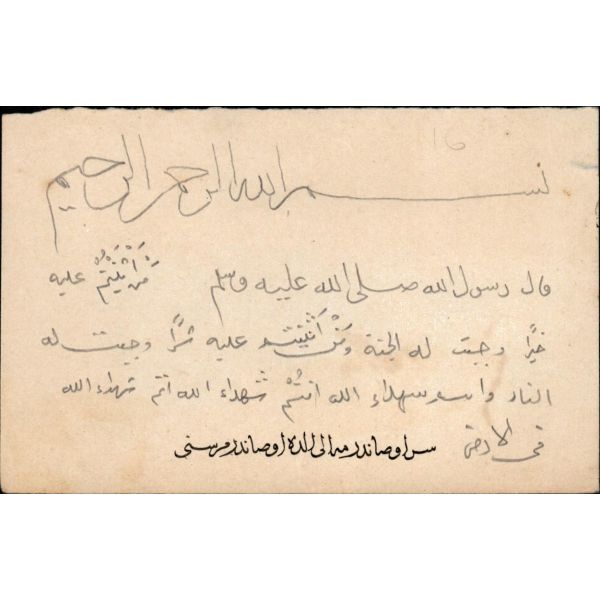 16
بسم الله الرحمن الرحيم
قال رسول الله صلى الله عليه وسلم مَنْ أَثْنَيْتُمْ عليه
خيرًا وجبت له الجنة ومَنْ أَثْنَيْتُمْ عليه شرًا وجبت له
النار وانتم شهداء الله انتُمْ شُهداء الله انتم شهداء الله
فى الارض